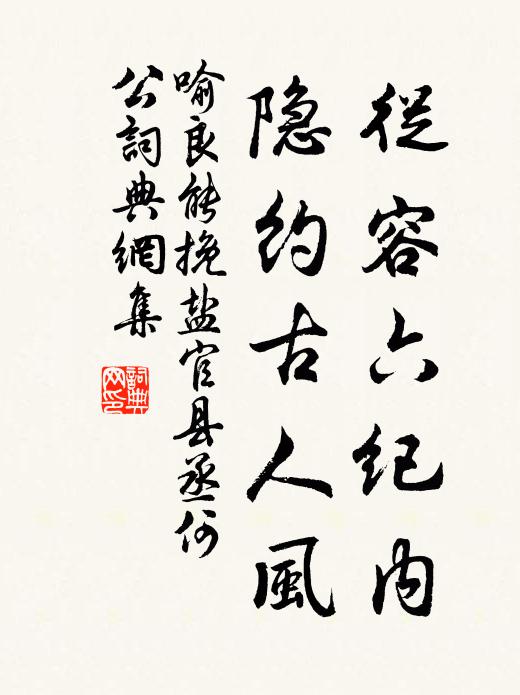 從容六纪内
隐约古人風
喻良能挽盐官县丞何
公詞典網集
詞典
网印